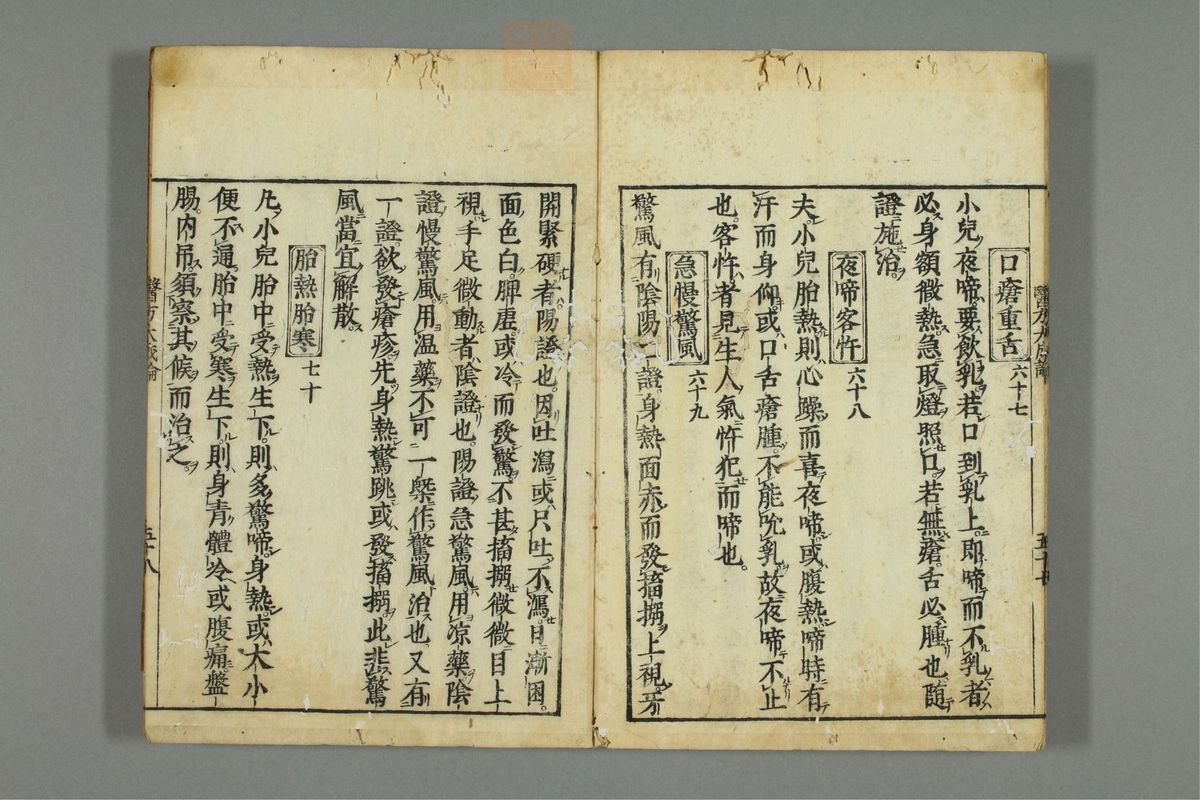 口瘡重舌 六十七
小兒夜啼要飲乳若口到乳上即啼而不乳者
必身額微熱急取燈照口若無瘡舌必腫也隨
證施治
夜啼客忤 六十八
夫小兒胎熱則心躁而喜夜啼或腹熱啼時有
汗而身仰或口舌瘡腫不能吮乳故夜啼不止
也客忤者見生人氣忤犯而啼也
急慢驚風 六十九
驚風有陰陽二證身熱面赤而發搐搦上視牙
開緊硬者陽證也因吐瀉或只吐不瀉日漸困
面色白脾虛或冷而發驚不甚搐搦微微目上
視手足微動者陰證也陽證急驚風用凉藥陰
證慢驚風用温藥不可一槩作驚風治也又有
一證欲發瘡疹先身熱驚跳或發搐搦此非驚
風當宜解散
胎熱胎寒 七十
凡小兒胎中受熱生下則多驚啼身熱或大小
便不通胎中受寒生下則身青體冷或腹痛盤
腸内吊須察其候而治之
醫方大成論
五十八